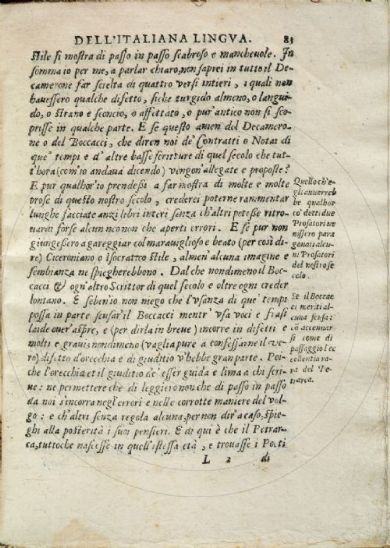 DELL'ITALIANA LINGVA. 83
stile si mostra di passo in passo scabroso e mancheuole. In
somma io per me, a parlar chiaro, non saprei in tutto il De
camerone far scielta di quattro versi intieri, i quali non
hauessero qualche difetto, siche turgido almeno, o langui
do, o strano e sconcio, o affettato, o pur'antico non si sco
prisse in qualche parte. E se questo auien del Decamero-
ne o del Boccacci, che diren noi de' Contratti o Notai di
que' tempi e d'altre basse scritture di quel secolo che tut
t'hora (com'io andaua dicendo) vengon'allegate e proposte?
E pur qualhor'io prendessi a far mostra di molte e molte
prose di questo nostro secolo, crederei poterne rammentar
lunghe facciate anzi libri interi senza ch'altri potesse ritro
narui forse alcun neo non che aperti errori. E se pur non
giungessero a gareggiar col marauiglioso e beato (per così di
re) Ciceroniano o isocratico stile, almen alcuna imagine e
sembianza ne spiegherebbono. Dal che nondimeno il Boc
cacci & ogn'altro Scrittor di quel secolo e oltre ogni creder
lontano. E seben'io non niego che l'vsanza di que' tempi
possa in parte scusar'il Boccacci mentr' vsa voci e frasi
laide ouer'aspre, e (per dirla in breue) incorre in difetti e
molti e graui: nondimeno (vaglia pure à confessarne il ve-
ro) difetto d'orecchia e di giuditio v'hebbe gran parte. Poi-
che l'orecchia et il giuditio de' esser guida e lima a chi scri
ue: ne permettere che di leggieri non che di passo in passo
da noi s'incorra negl'errori e nelle corrotte maniere del vol-
go: e ch'altri senza regola alcuna, per non dir'a caso, spie
ghi alla posterità i suoi pensieri. E di quì è che il Petrar-
ca, tuttoche nascesse in quell'istessa età, e trouasse i Poeti
L 2 di
Quello ch'e
gli auuerreb
be qualhor
cò detti due
Prosatori ve
nissero para
gonati alcu
ni Prosatori
del nostro se
colo.
Se il Boccac
ci meriti al
cuna scusa:
cō accennar
si come di
passaggio l'ec
cellentia ra-
ra del Pe-
trarca.